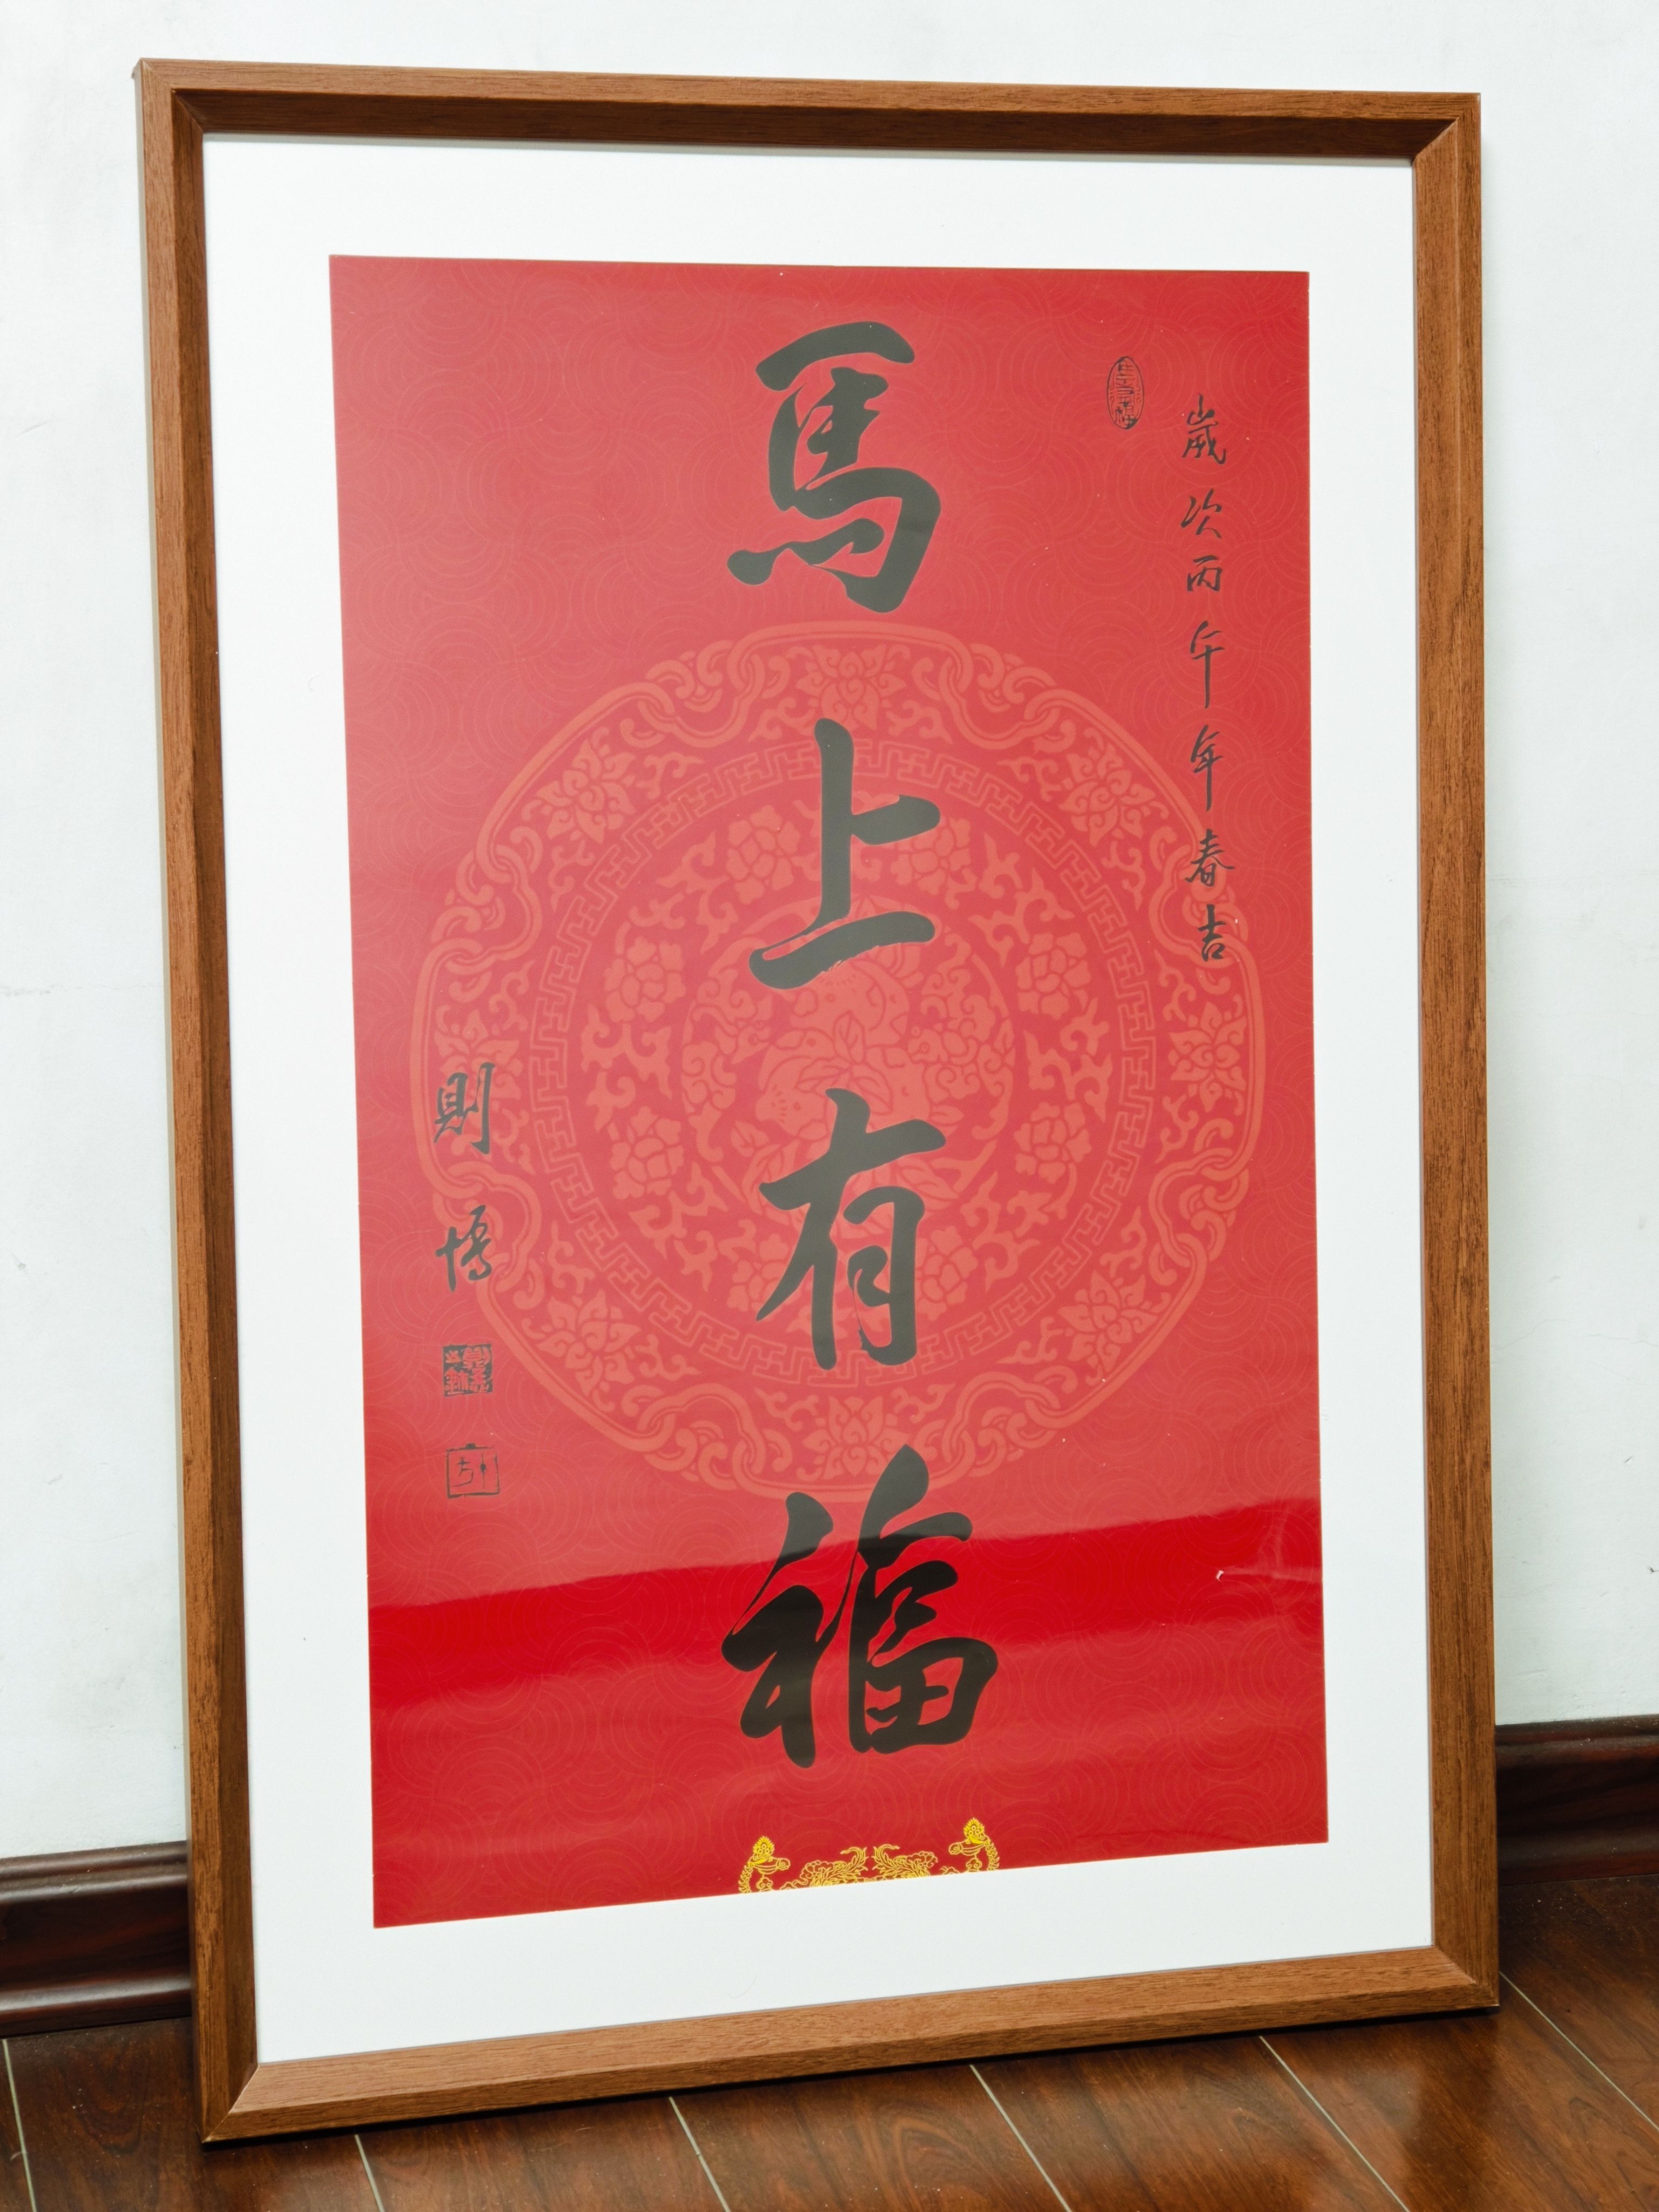 歲次丙午年春吉
馬上有福
則博